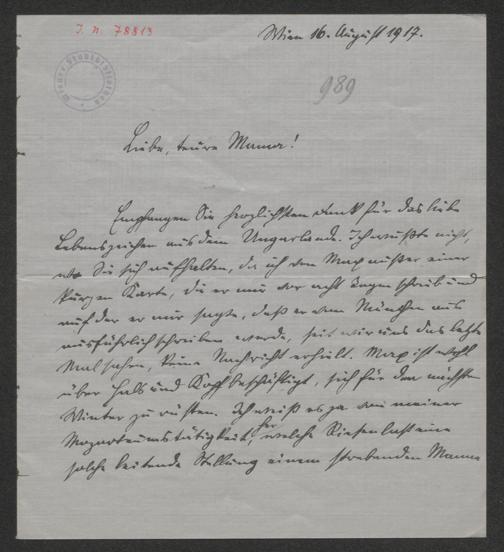 I. N. 78813
Wien 16. August 1917.
Wiener Stadtbibliothek
989
Liebe, teure Mama!
Empfangen Sie herzlichsten Dank für das liebe
Lebenszeichen aus dem Ungarlande. Ich wußte nicht,
wo Sie sich aufhalten, da ich von Max außer einer
kurzen Karte, die er mir vor acht Tagen schrieb und
auf der er mir sagte, daß er von München aus
ausführlich schreiben werde, seit wir uns das letzte
Mal sahen, keine Nachricht erhielt. Max ist wohl
über Hals und Kopf beschäftigt, sich für den nächsten
Winter zu rüsten. Ich weiß es ja von meiner
Mozarteumstätigkeit her, welche Riesenlast eine
solche leitende Stellung einem strebenden Manne